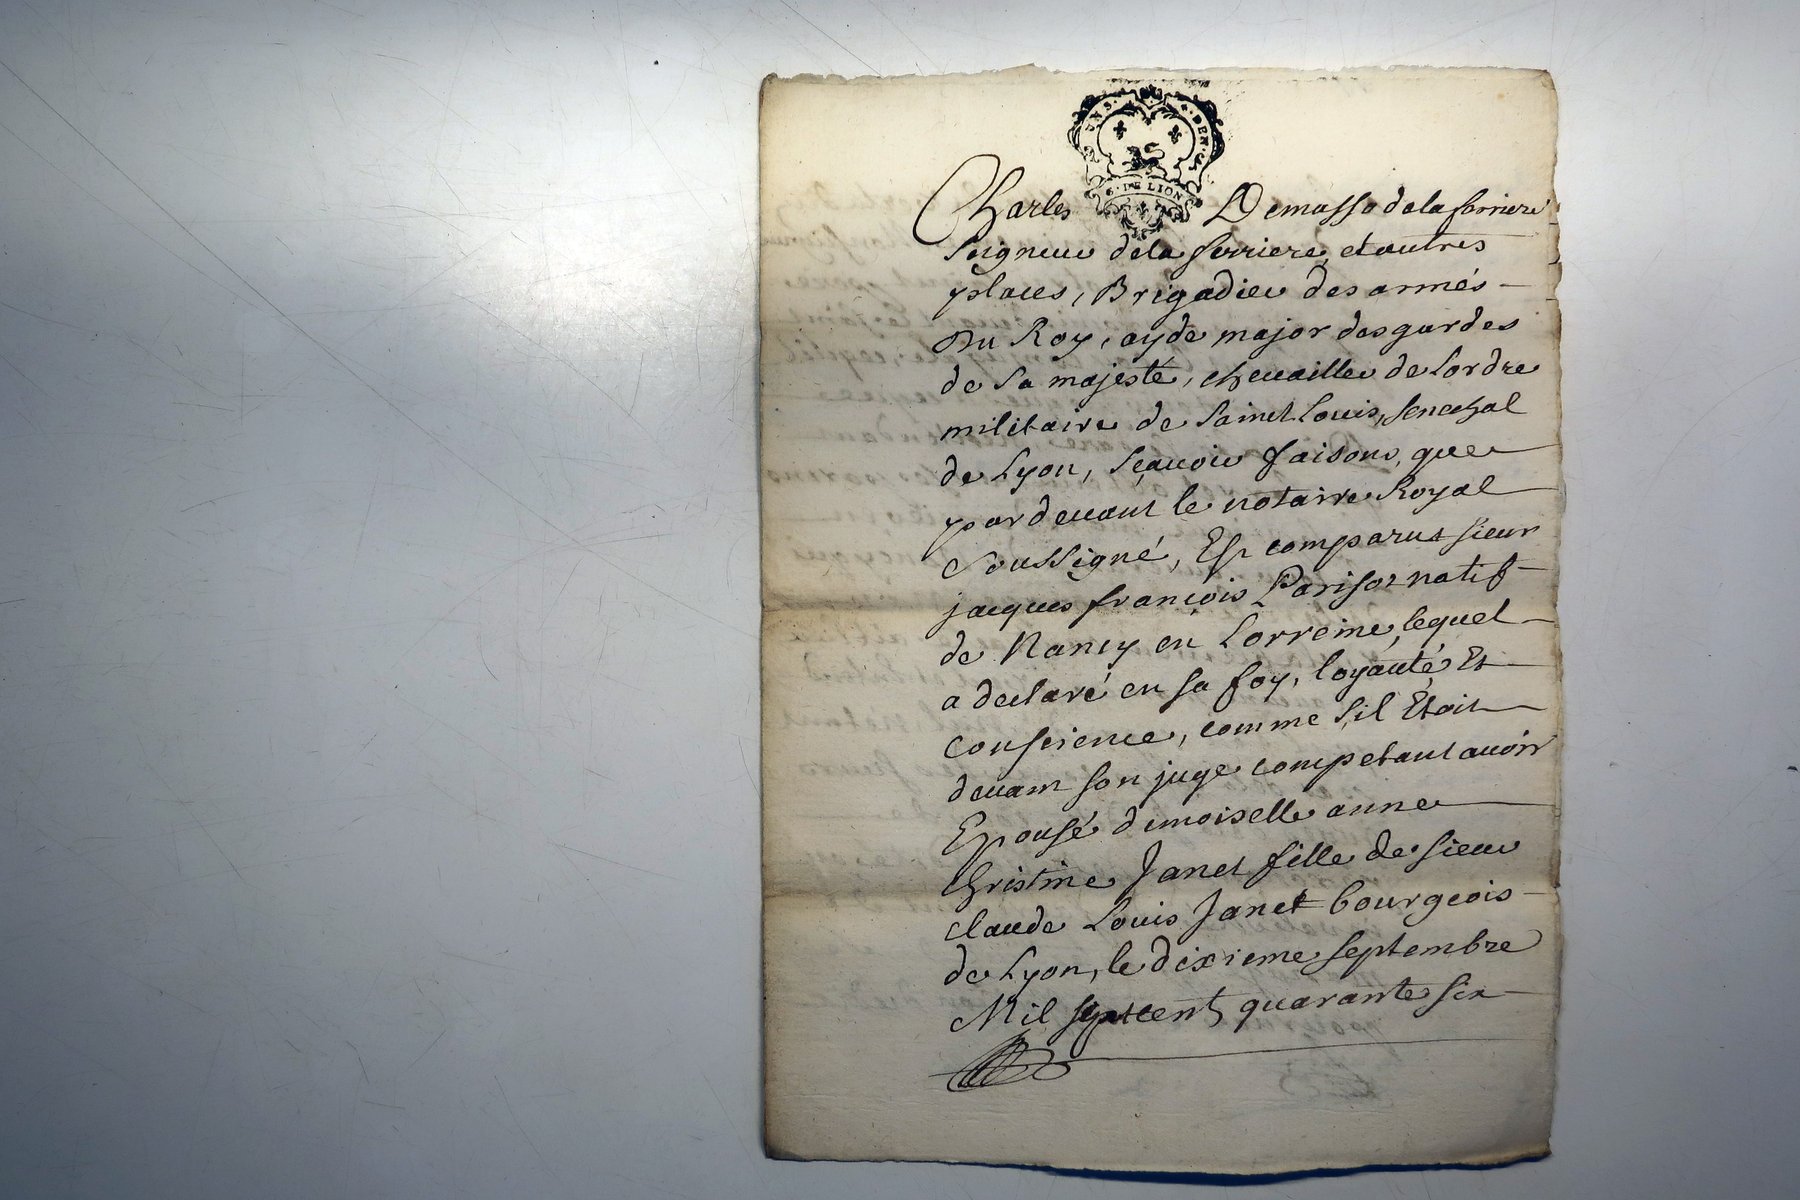 UN S. DEN. 6.
G. DE LION
Charles Demasso dela ferriere
seigneur dela ferriere, et autres
places, Brigadier des armés
Du Roy, ayde major des gardes
de sa majesté, chevaillier de lordre
militaire de Sainct Louis, senechal
de Lyon, sçavoir faisons, que
pardevant le notaire Royal
soussigné, Est comparut sieur
jacques françois Parisot natif
de Nancy en Lorreine, lequel
a declaré en sa foy, loyauté, Et
conscience, comme s'il Etoit
devant son juge competant avoir
Epousé demoiselle anne
christine Janet fille de sieur
claude Louis Janet bourgeois
de Lyon, le dixieme septembre
Mil septcent quarante six